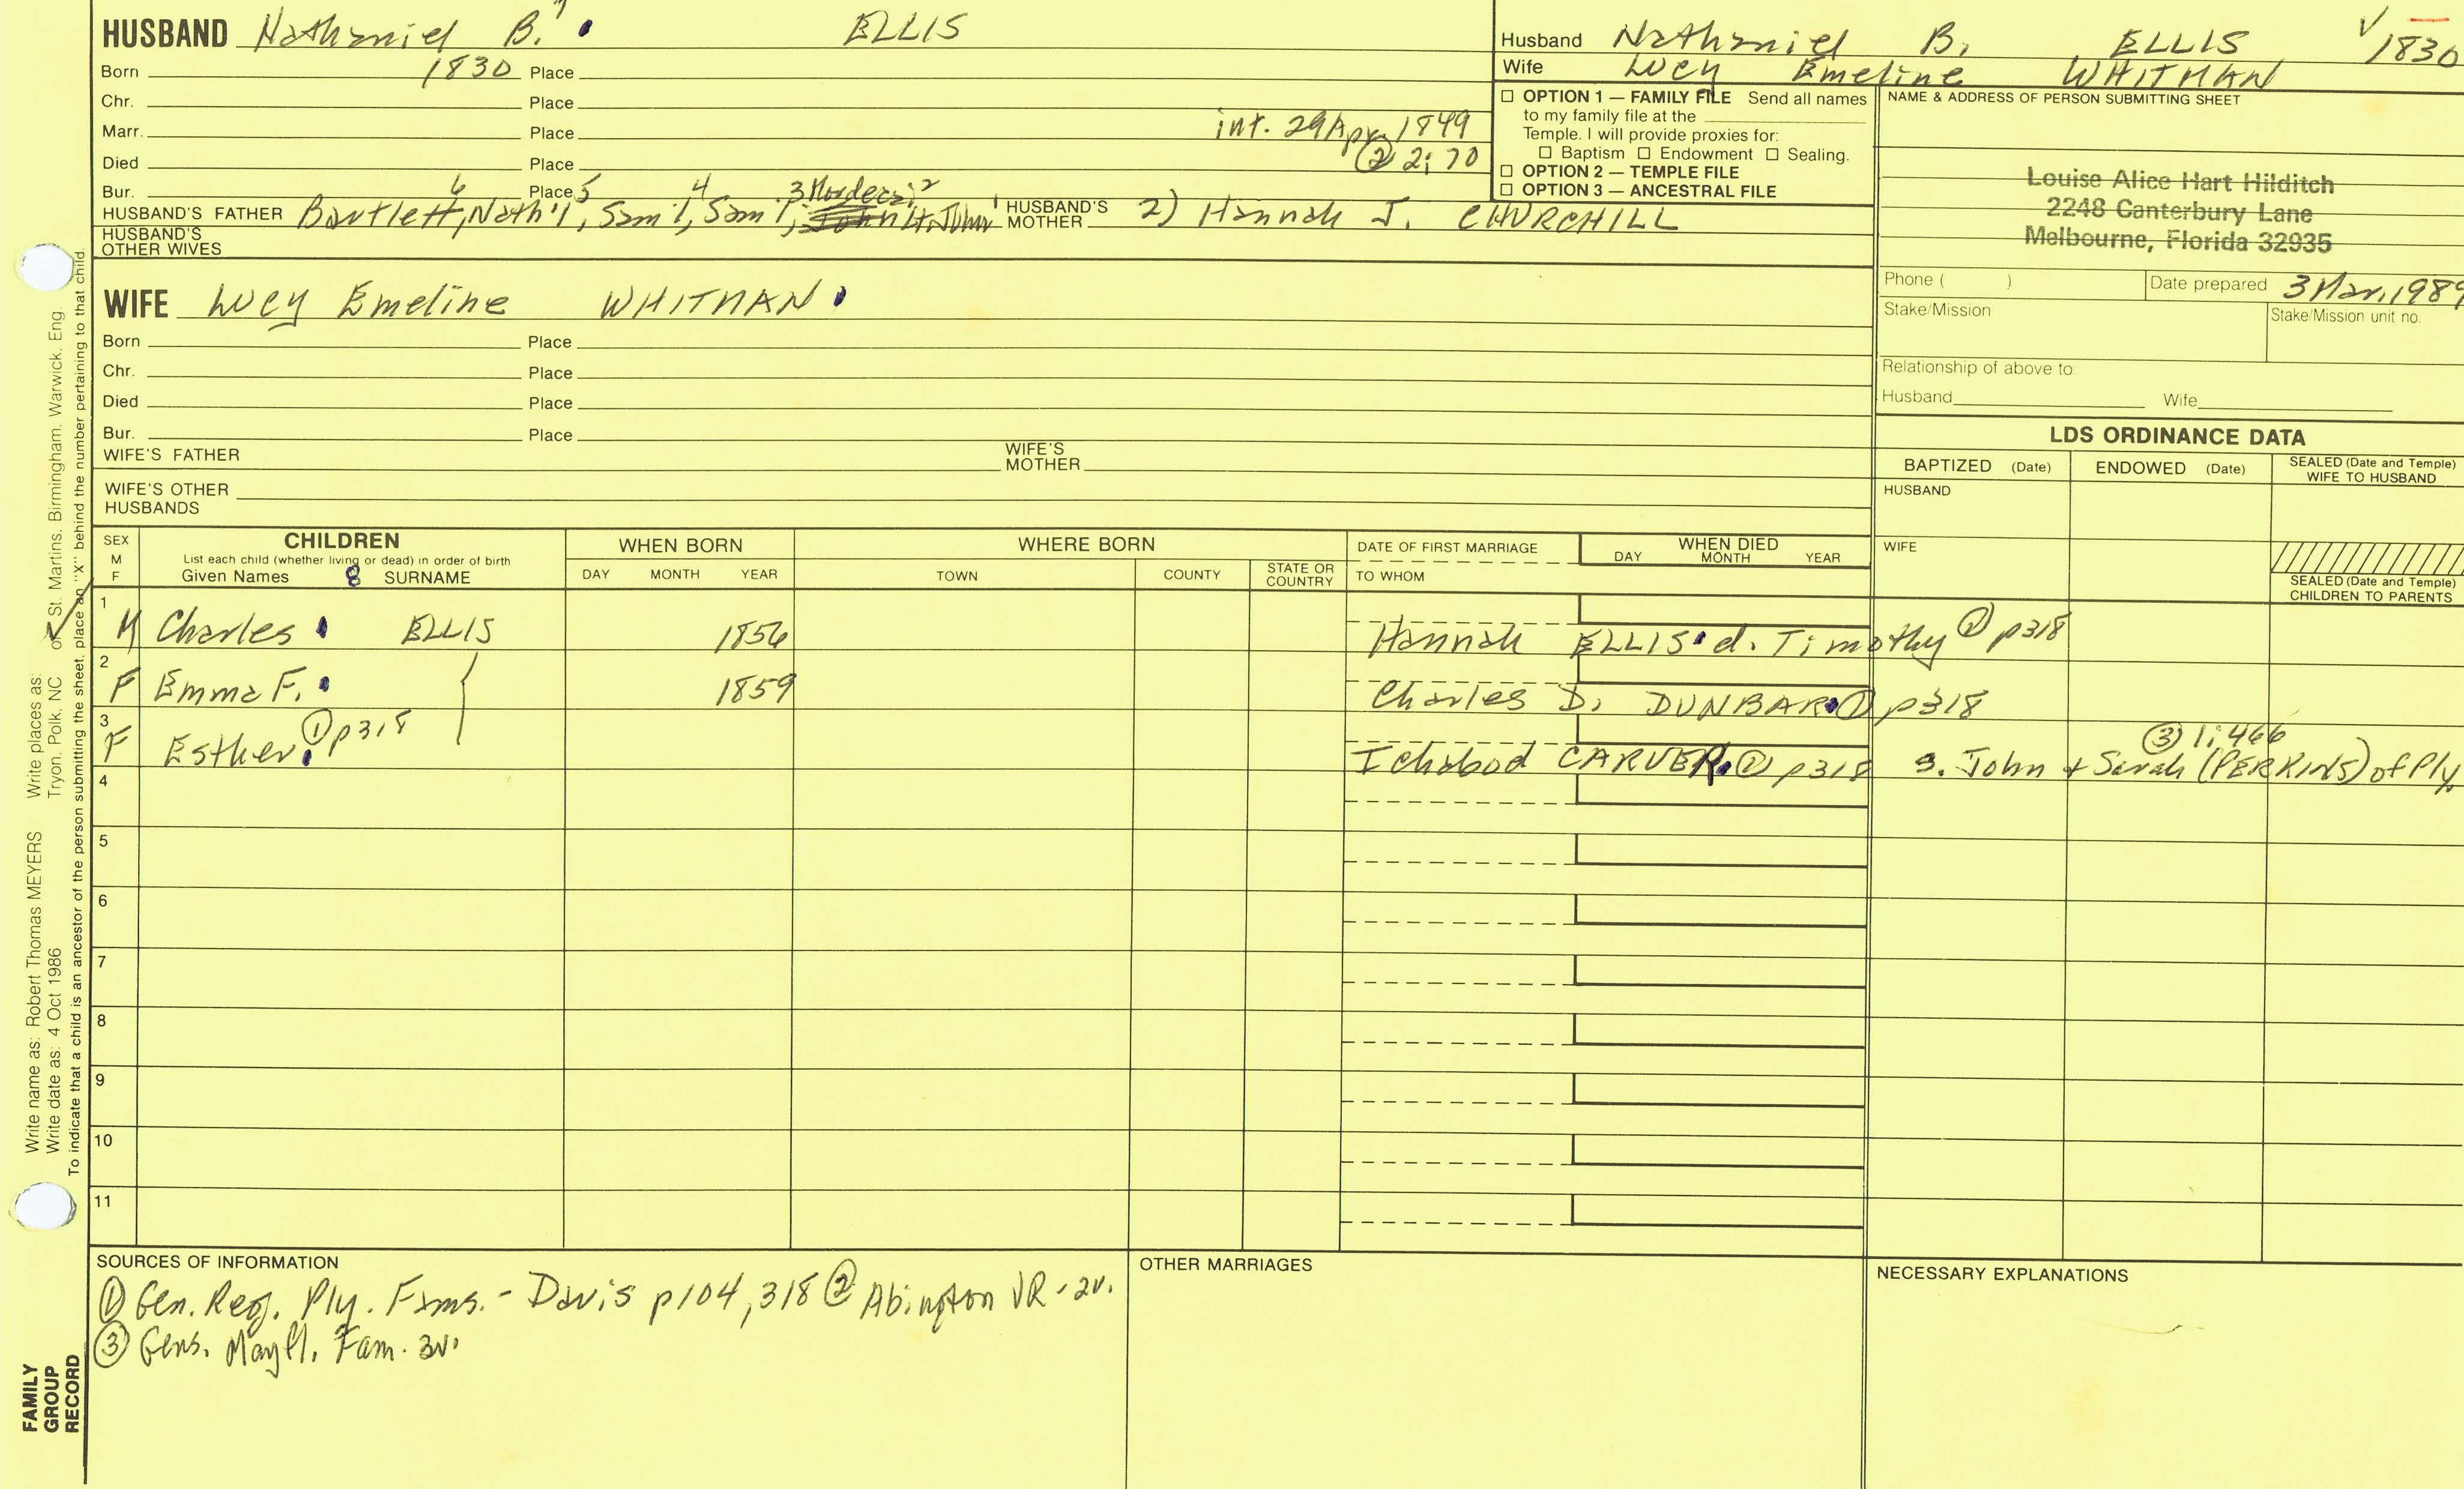 HUSBAND Nathaniel B.7 ELLIS
Born 1830 Place
Chr. Place
Marr. Place int. 29 Apr. 1849
Died Place ② 2; 70
Bur. Place
HUSBAND'S FATHER Bartlett6, Nath'l5, Sam'l4, Sam'l3, Mordecai2, John1 HUSBAND'S MOTHER 2) Hannah J. CHURCHILL
HUSBAND'S OTHER WIVES
Husband Nathaniel B. ELLIS 1830
Wife Lucy Emeline WHITMAN
☐ OPTION 1 — FAMILY FILE Send all names
to my family file at the
Temple. I will provide proxies for:
☐ Baptism ☐ Endowment ☐ Sealing.
☐ OPTION 2 — TEMPLE FILE
☐ OPTION 3 — ANCESTRAL FILE
NAME & ADDRESS OF PERSON SUBMITTING SHEET
Louise Alice Hart Hilditch
2248 Canterbury Lane
Melbourne, Florida 32935
Phone ( ) Date prepared 3 Mar. 1989
Stake/Mission Stake/Mission unit no.
Relationship of above to:
Husband Wife
WIFE Lucy Emeline WHITMAN
Born Place
Chr. Place
Died Place
Bur. Place
WIFE'S FATHER WIFE'S MOTHER
WIFE'S OTHER HUSBANDS
LDS ORDINANCE DATA
BAPTIZED (Date) ENDOWED (Date) SEALED (Date and Temple) WIFE TO HUSBAND
HUSBAND
WIFE
SEALED (Date and Temple) CHILDREN TO PARENTS
SEX M F
CHILDREN
List each child (whether living or dead) in order of birth
Given Names 8 SURNAME
WHEN BORN
DAY MONTH YEAR
WHERE BORN
TOWN COUNTY STATE OR COUNTRY
DATE OF FIRST MARRIAGE
TO WHOM
WHEN DIED
DAY MONTH YEAR
1 M Charles ELLIS 1856 Hannah ELLIS d. Timothy ① p318
2 F Emma F. 1859 Charles D. DUNBAR ① p318
3 F Esther ① p318 Ichabod CARVER ① p318 s. John & Sarah (PERKINS) of Ply. ③ 1; 466
4
5
6
7
8
9
10
11
SOURCES OF INFORMATION
① Gen. Reg. Ply. Fams. - Davis p104, 318 ② Abington VR - 2v.
③ Gens. Mayfl. Fam. 3v.
OTHER MARRIAGES
NECESSARY EXPLANATIONS
Write name as: Robert Thomas MEYERS Write places as: Tryon, Polk, NC or St. Martins, Birmingham, Warwick, Eng.
Write date as: 4 Oct 1986
To indicate that a child is an ancestor of the person submitting the sheet, place an "X" behind the number pertaining to that child.
FAMILY
GROUP
RECORD